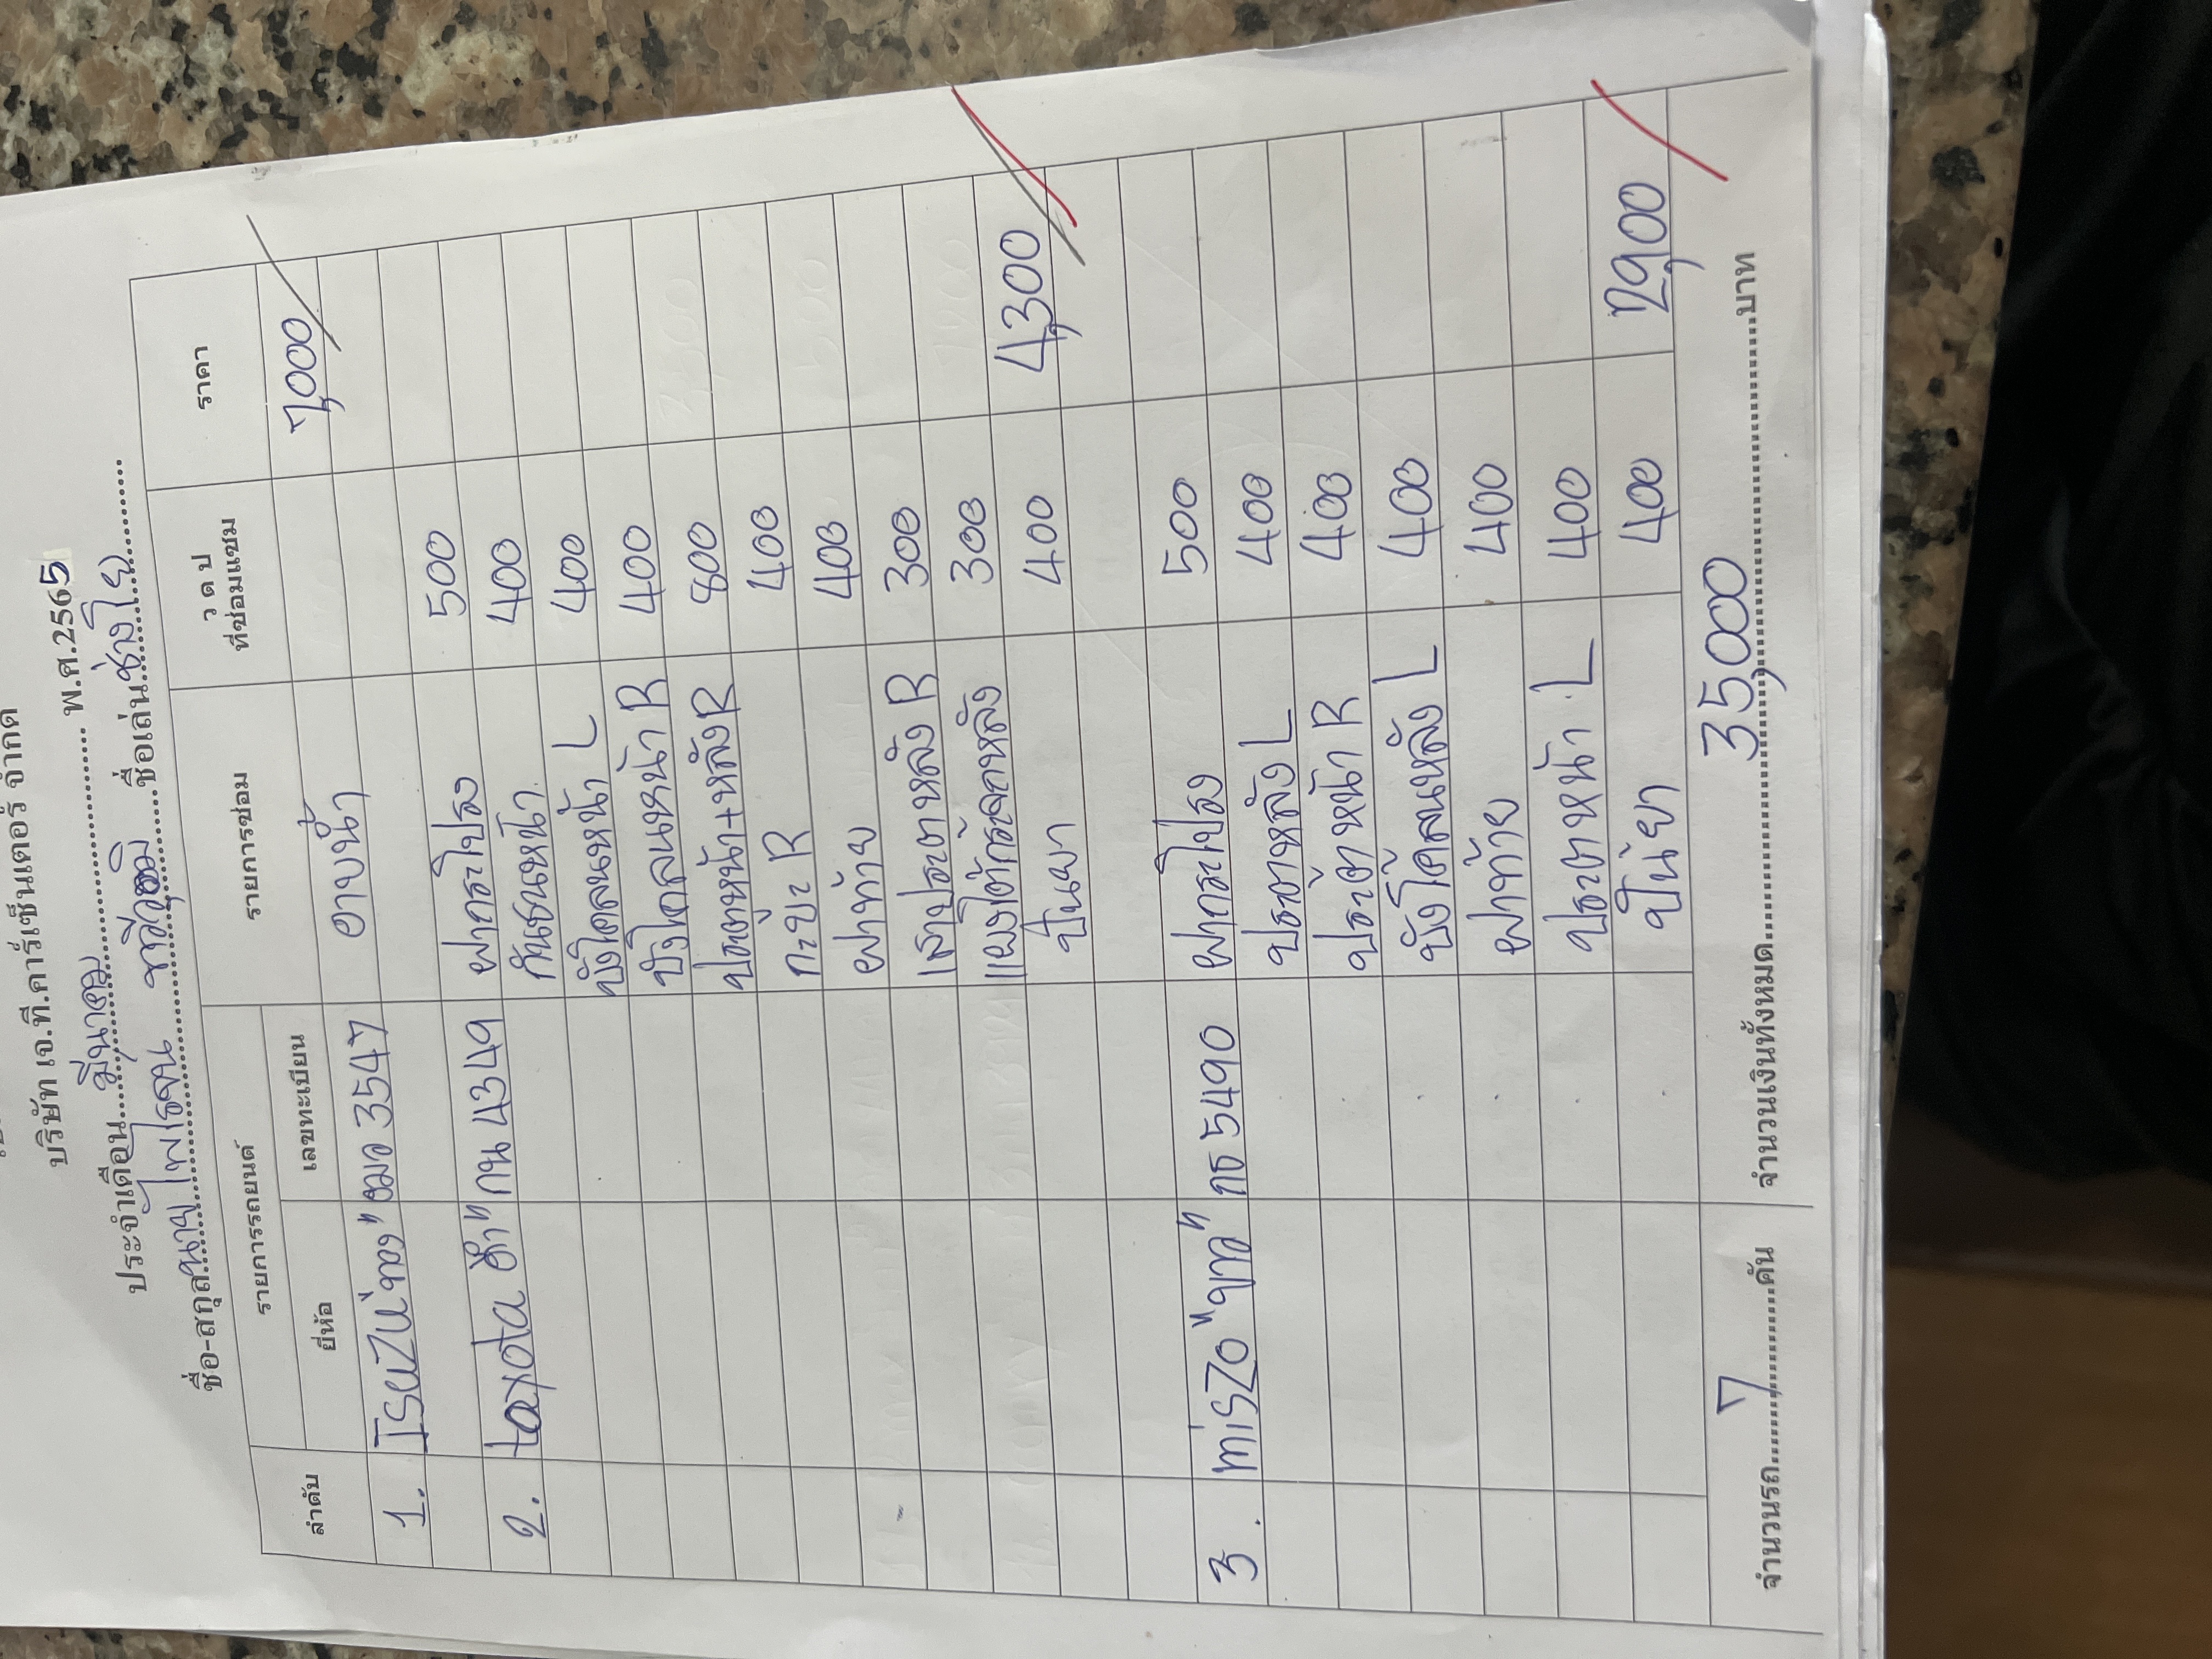 บริษัท เจ.ที.คาร์เซ็นเตอร์ จำกัด
ประจำเดือน มีนาคม พ.ศ.2565
ชื่อ-สกุล นาย ไพโรจน์ ชื่อเล่น ช่างโย
ลำดับ รายการรถยนต์ รายการซ่อม ว ด ป ราคา
ยี่ห้อ เลขทะเบียน ที่ซ่อมแซม
1. Isuzu "ทอง" 3547 อาบน้ำ 7,000
2. toyota "ดำ" กน 4349 ฝากระโปรง 500
กันชนหน้า 400
บังโคลนหน้า L 400
บังโคลนหน้า R 400
ประตูหน้า+หลัง R 800
กะบะ R 400
ฝาท้าย 400
เสาประตูหลัง R 300
แผงใต้กระจกหลัง 300
ปั่นยา 400 4,300
3. miszo "ขาว" กธ 5490 ฝากระโปรง 500
ประตูหลัง L 400
ประตูหน้า R 400
บังโคลนหลัง L 400
ฝาท้าย 400
ประตูหน้า L 400
ปั่นยา 400 2,900
จำนวนรถ 7 คัน จำนวนเงินทั้งหมด 35,000 บาท